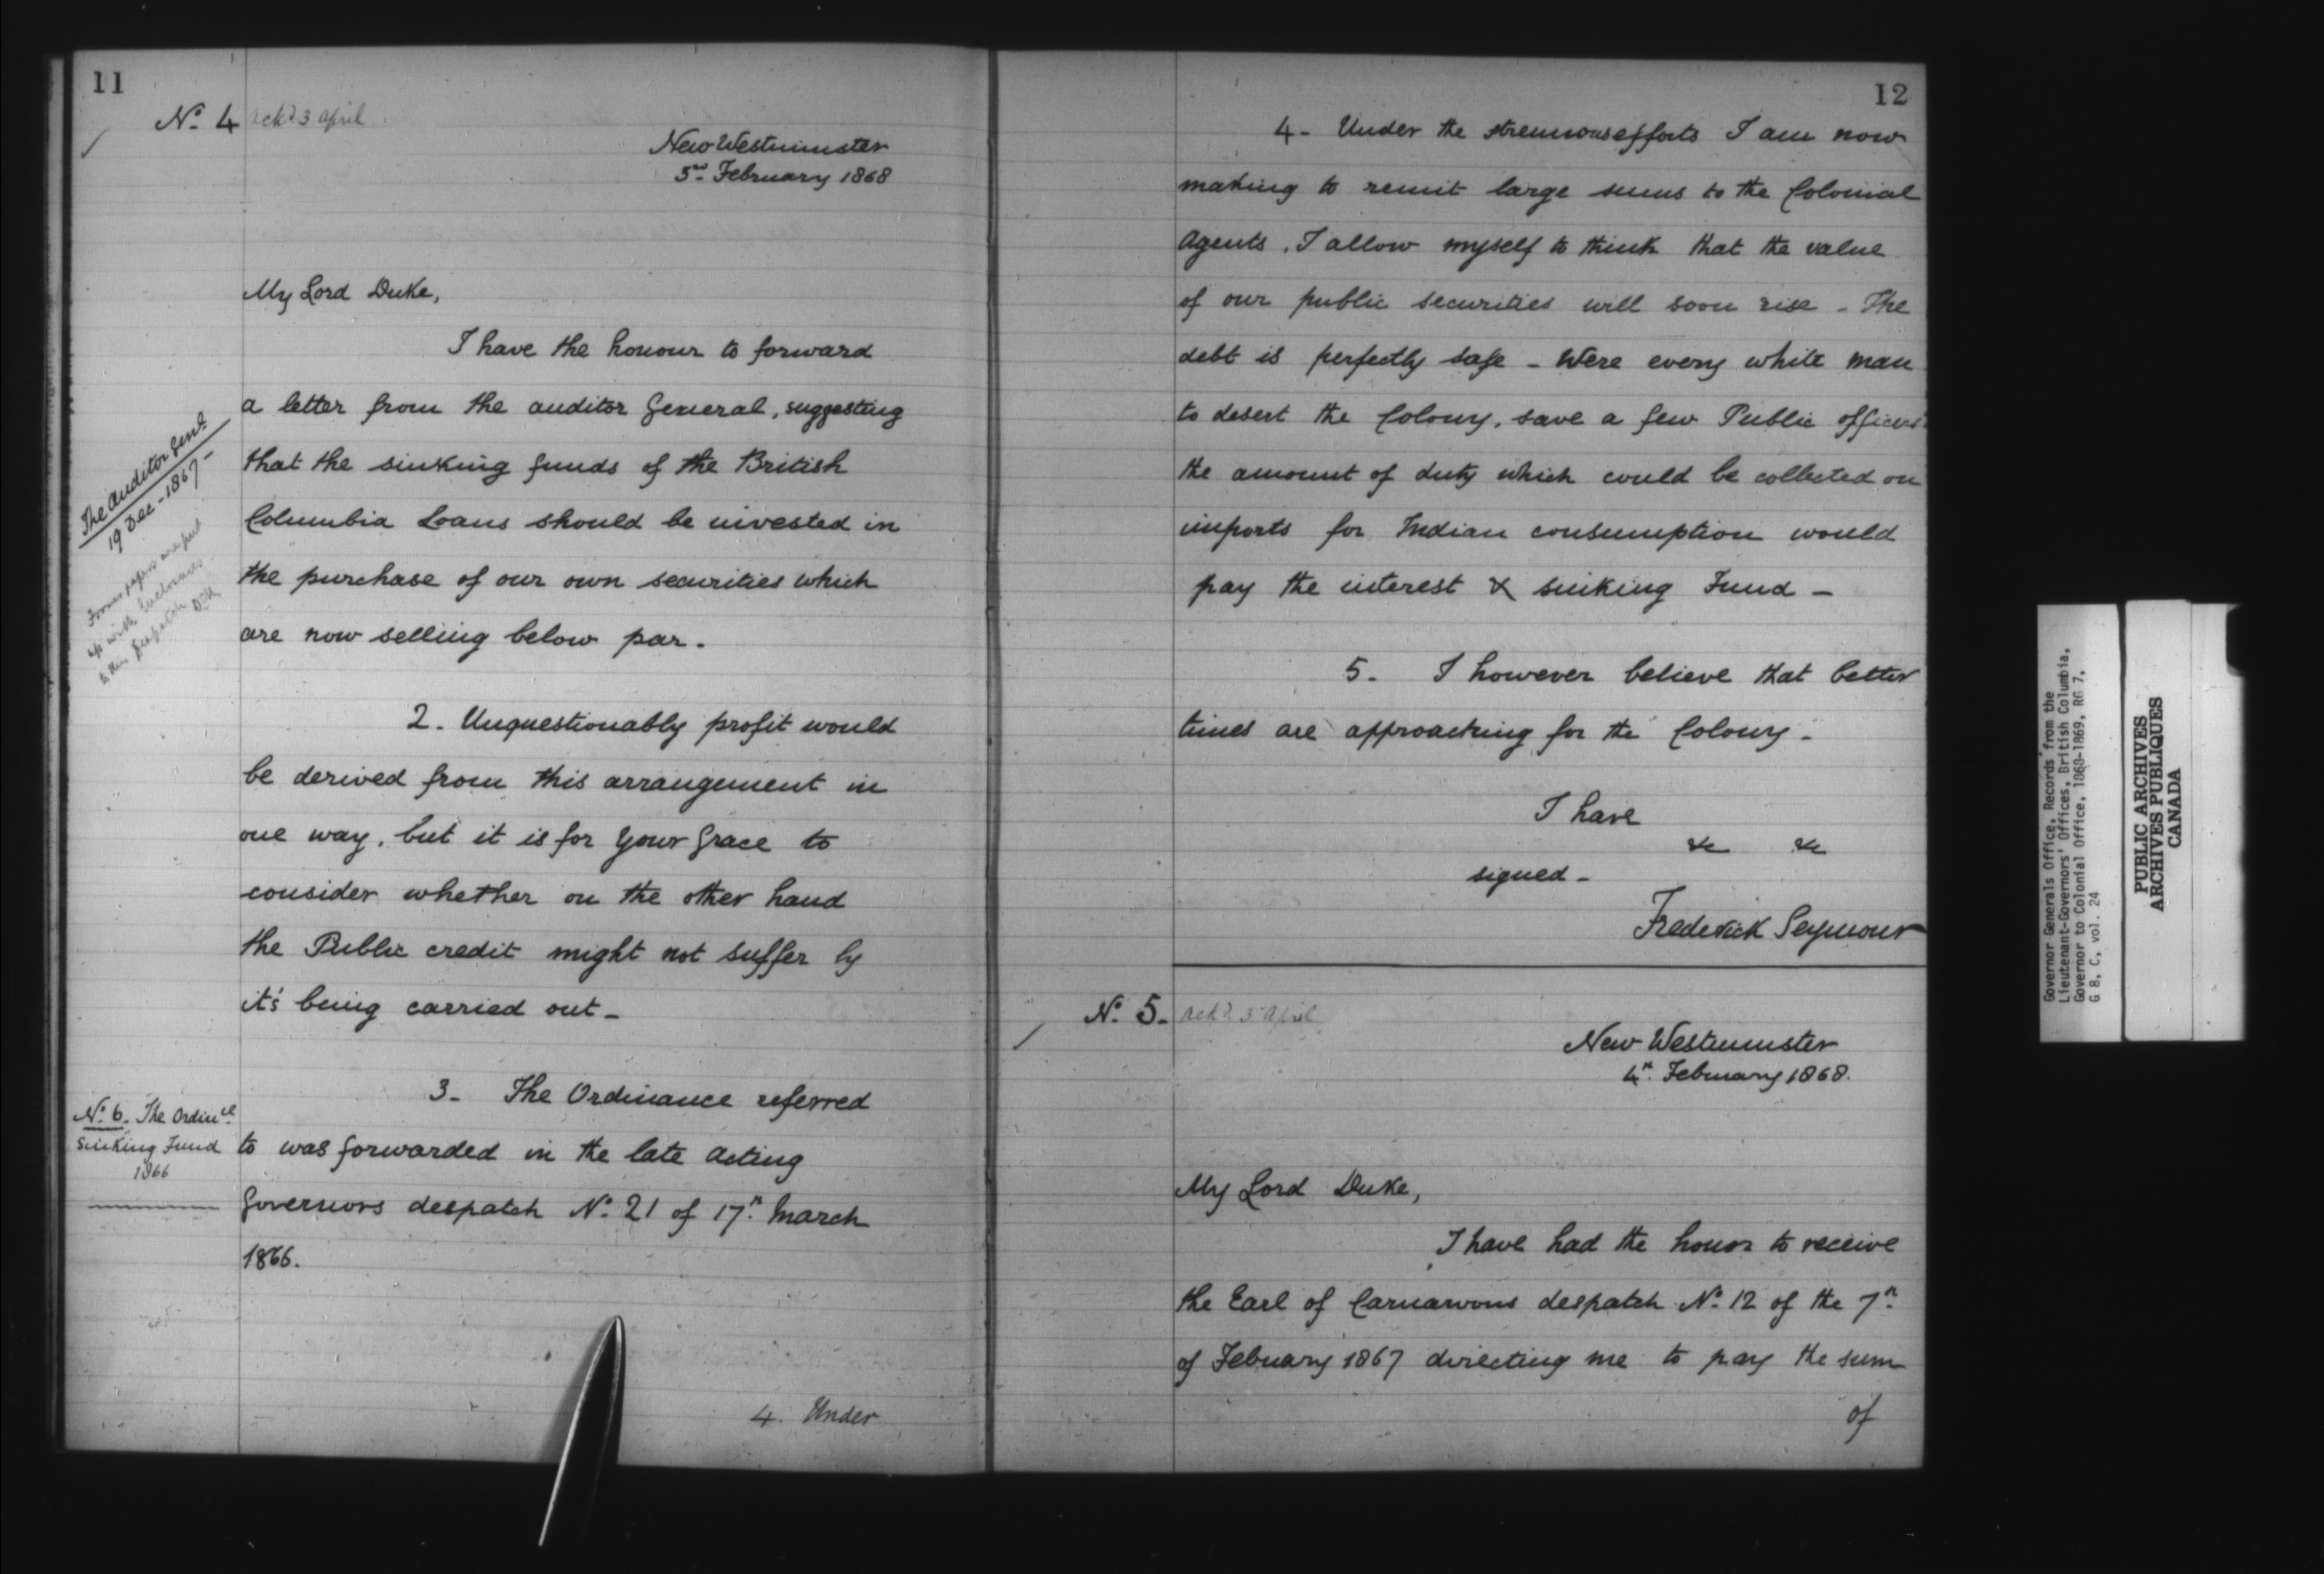 11
No. 4 ackd 3 April
New Westminster
3rd February 1868
My Lord Duke,
I have the honour to forward
a letter from the Auditor General, suggesting
that the sinking funds of the British
Columbia Loans should be invested in
the purchase of our own securities which
are now selling below par.
The Auditor Genl.
19 Dec - 1867 -
Former papers are put
up with Enclosures
to this Despatch
2. Unquestionably profit would
be derived from this arrangement in
one way, but it is for Your Grace to
consider whether on the other hand
the Public credit might not suffer by
it's being carried out -
3 - The Ordinance referred
to was forwarded in the late Acting
Governors despatch No. 21 of 17th. March
1866.
No. 6. The Ordince.
Sinking Fund
1866
4. Under
12
4 - Under the strenuous efforts I am now
making to remit large sums to the Colonial
Agents, I allow myself to think that the value
of our public securities will soon rise - The
debt is perfectly safe - Were every white man
to desert the Colony, save a few Public officers
the amount of duty which could be collected on
imports for Indian consumption would
pay the interest & sinking Fund -
5 - I however believe that better
times are approaching for the Colony -
I have
&c &c
signed -
Frederick Seymour
No. 5 - ackd 3 April
New Westminster
4th. Febuary 1868.
My Lord Duke,
I have had the honor to receive
the Earl of Carnarvons despatch No. 12 of the 7th.
of Febuary 1867 directing me to pay the sum
of
Governor Generals Office, Records from the
Lieutenant-Governors' Offices, British Columbia,
Governor to Colonial Office, 1868-1869, RG 7,
G 8, C, vol. 24
PUBLIC ARCHIVES
ARCHIVES PUBLIQUES
CANADA